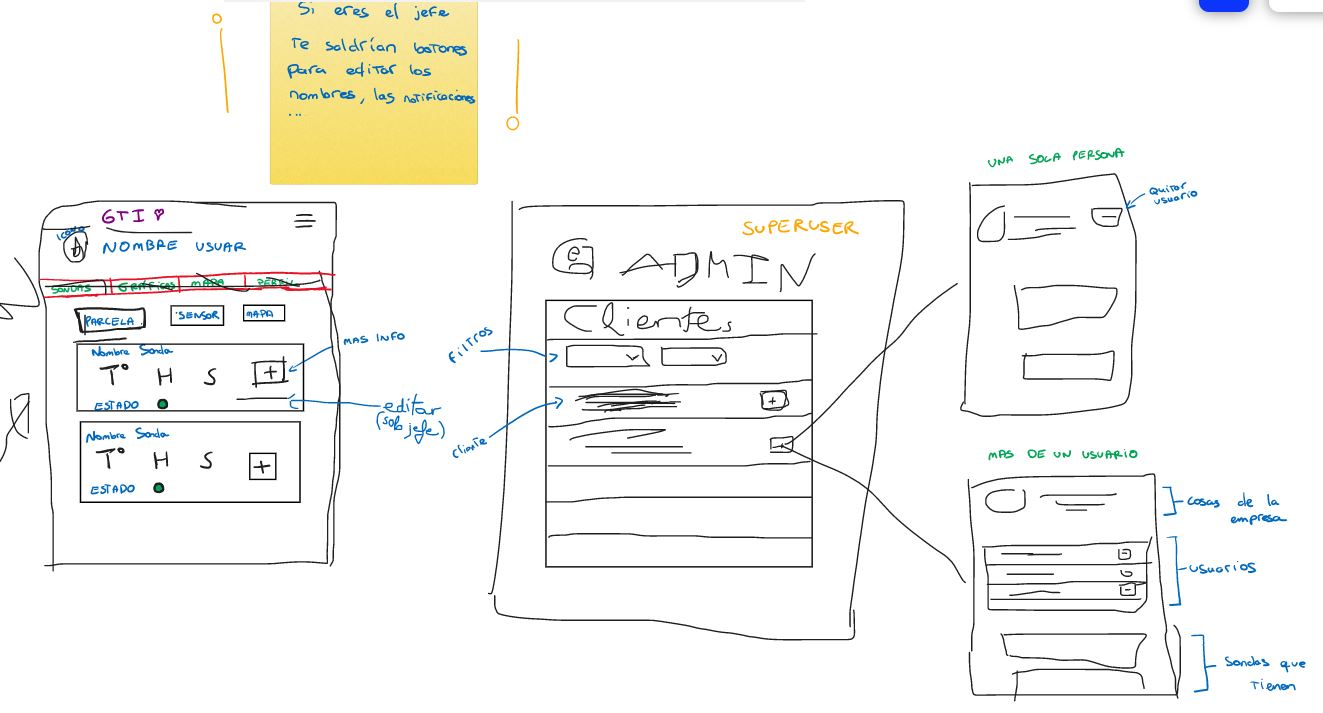 Si eres el jefe
Te saldrían botones
para editar los
nombres, las notificaciones
...
GTI
icono
NOMBRE USUAR
SONDAS GRAFICOS MAPA PERFIL
PARCELA SENSOR MAPA
Nombre Sonda
T° H S +
ESTADO
MAS INFO
editar
(solo jefe)
Nombre Sonda
T° H S +
ESTADO
SUPERUSER
ADMIN
Clientes
Filtros
cliente
+
UNA SOLA PERSONA
Quitar
usuario
MAS DE UN USUARIO
cosas de la
empresa
usuarios
Sondas que
tienen